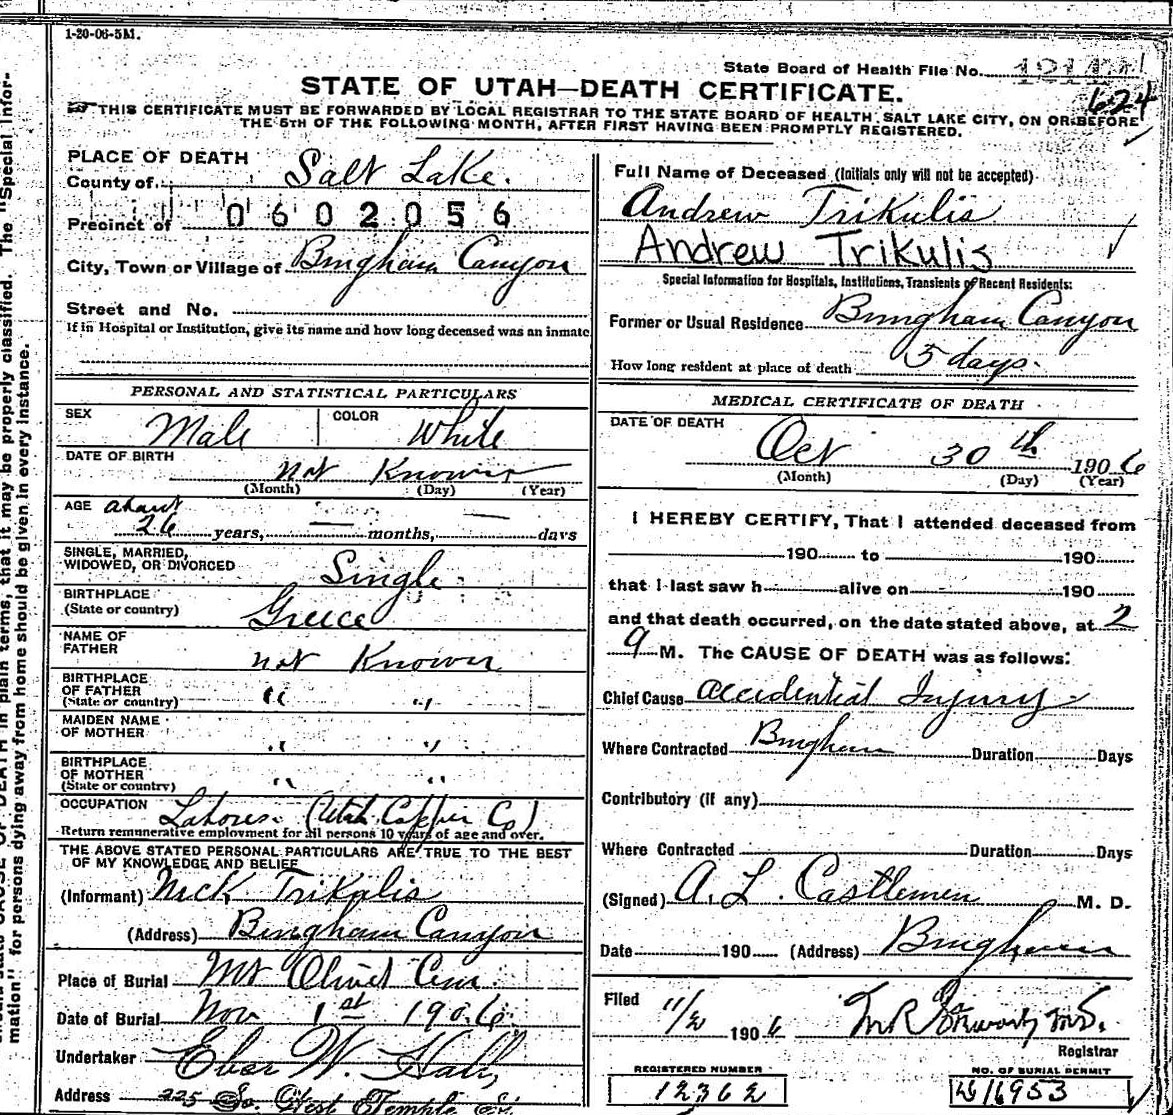 1-20-06-5M.
State Board of Health File No.
624
STATE OF UTAH—DEATH CERTIFICATE.
THIS CERTIFICATE MUST BE FORWARDED BY LOCAL REGISTRAR TO THE STATE BOARD OF HEALTH, SALT LAKE CITY, ON OR BEFORE
THE 5TH OF THE FOLLOWING MONTH, AFTER FIRST HAVING BEEN PROMPTLY REGISTERED.
PLACE OF DEATH
County of Salt Lake.
Precinct of 0602056
City, Town or Village of Bingham Canyon
Street and No.
If in Hospital or Institution, give its name and how long deceased was an inmate
PERSONAL AND STATISTICAL PARTICULARS
SEX Male COLOR White
DATE OF BIRTH not Known
(Month) (Day) (Year)
AGE about
26 years, — months, — days
SINGLE, MARRIED,
WIDOWED, OR DIVORCED Single
BIRTHPLACE
(State or country) Greece
NAME OF
FATHER not Known
BIRTHPLACE
OF FATHER
(State or country) " "
MAIDEN NAME
OF MOTHER " "
BIRTHPLACE
OF MOTHER
(State or country) " "
OCCUPATION Laborer (Utah Copper Co)
Return remunerative employment for all persons 10 years of age and over.
THE ABOVE STATED PERSONAL PARTICULARS ARE TRUE TO THE BEST
OF MY KNOWLEDGE AND BELIEF
(Informant) Nick Trikalis
(Address) Bingham Canyon
Place of Burial Mt Olivet Cem
Date of Burial Nov 1st 1906
Undertaker Eber W. Hall
Address 225 So. West Temple St.
Full Name of Deceased (Initials only will not be accepted)
Andrew Trikulis
Andrew Trikulis
Special Information for Hospitals, Institutions, Transients of Recent Residents:
Former or Usual Residence Bingham Canyon
How long resident at place of death 5 days.
MEDICAL CERTIFICATE OF DEATH
DATE OF DEATH
Oct 30th 1906
(Month) (Day) (Year)
I HEREBY CERTIFY, That I attended deceased from
190 to 190
that I last saw h alive on 190
and that death occurred, on the date stated above, at 2
a M. The CAUSE OF DEATH was as follows:
Chief Cause accidential Injury
Where Contracted Bingham Duration Days
Contributory (if any)
Where Contracted Duration Days
(Signed) A. L. Castlemen M. D.
Date 190 (Address) Bingham
Filed 11/2 1906
Registrar
REGISTERED NUMBER
12362
NO. OF BURIAL PERMIT
16953
mation" for persons dying away from home should be given in every instance.